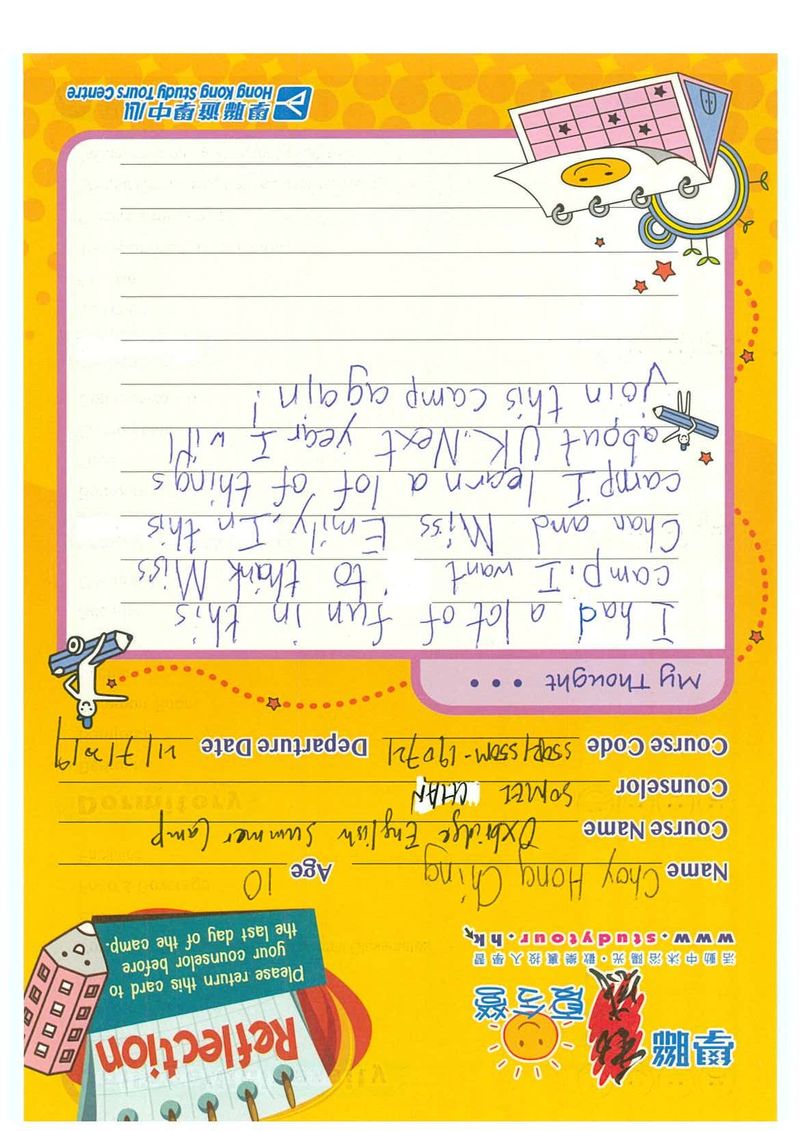 學聯
夏令營
活動中沐浴陽光・歡樂裏投入學習
www.studytour.hk
Reflection
Please return this card to
your counselor before
the last day of the camp.
Name Choy Hong Ching Age 10
Course Name Oxbridge English Summer Camp
Counselor SOMEI CHAN
Course Code SSOP/SSOM-190721 Departure Date 21/7/2019
My Thought ...
I had a lot of fun in this
camp. I want to thank Miss
Chan and Miss Emily. In this
camp I learn a lot of things
about UK. Next year I will
join this camp again!
學聯遊學中心
Hong Kong Study Tours Centre